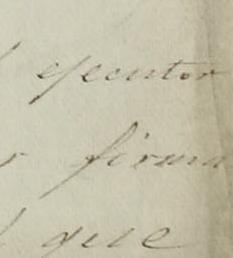 ejecutor
firma
que